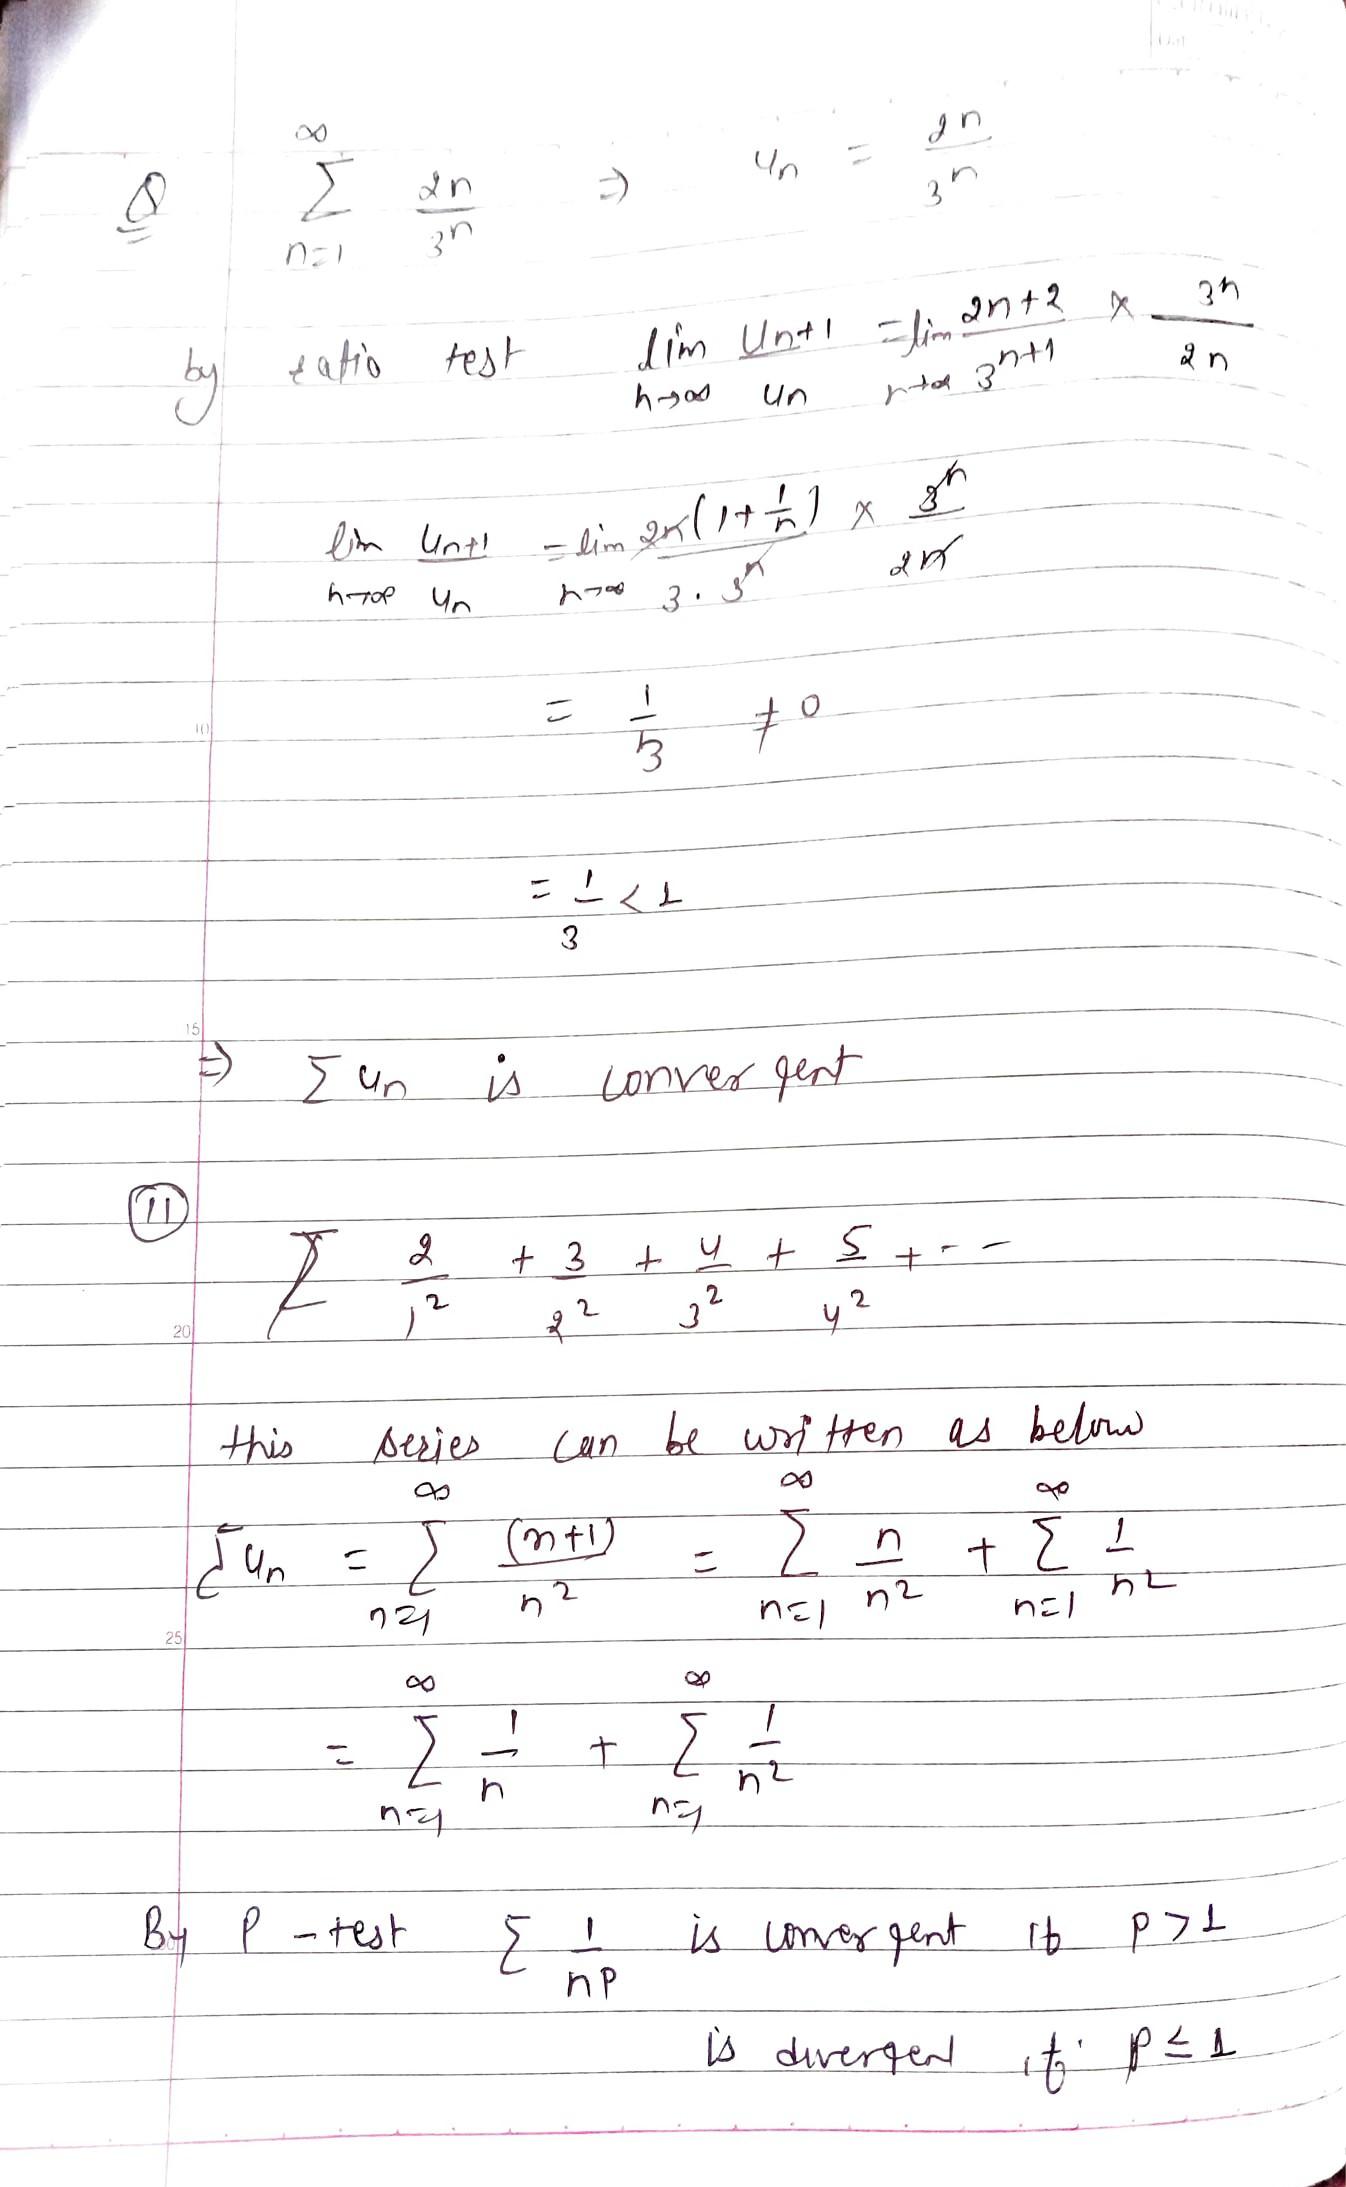 Q ∞ Σ n=1 2n/3^n ⇒ un = 2n/3^n
by ratio test lim n→∞ Un+1/un = lim n→∞ 2n+2/3^n+1 × 3^n/2n
lim n→∞ Un+1/un = lim n→∞ 2n(1+1/n)/3.3^n × 3^n/2n
= 1/3 ≠ 0
10
= 1/3 < 1
15
⇒ Σ un is convergent
11
Σ 2/1^2 + 3/2^2 + 4/3^2 + 5/4^2 + - -
20
this series can be written as below
Σ un = ∞ Σ n=1 (n+1)/n^2 = ∞ Σ n=1 n/n^2 + ∞ Σ n=1 1/n^2
25
= ∞ Σ n=1 1/n + ∞ Σ n=1 1/n^2
By P - test Σ 1/n^p is convergent if p > 1
is divergent if p ≤ 1